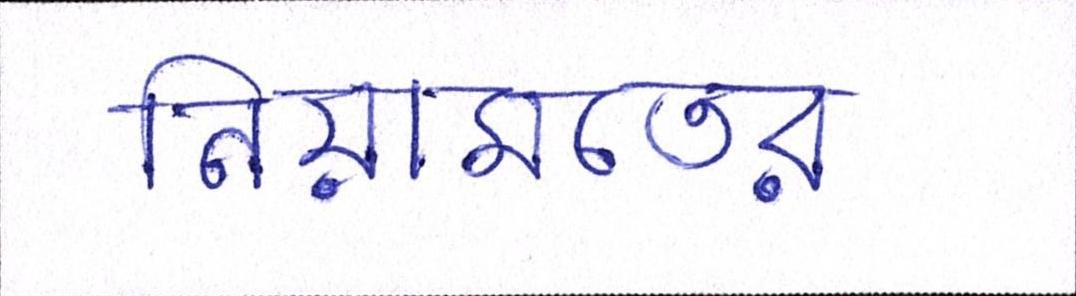 নিয়ামতের